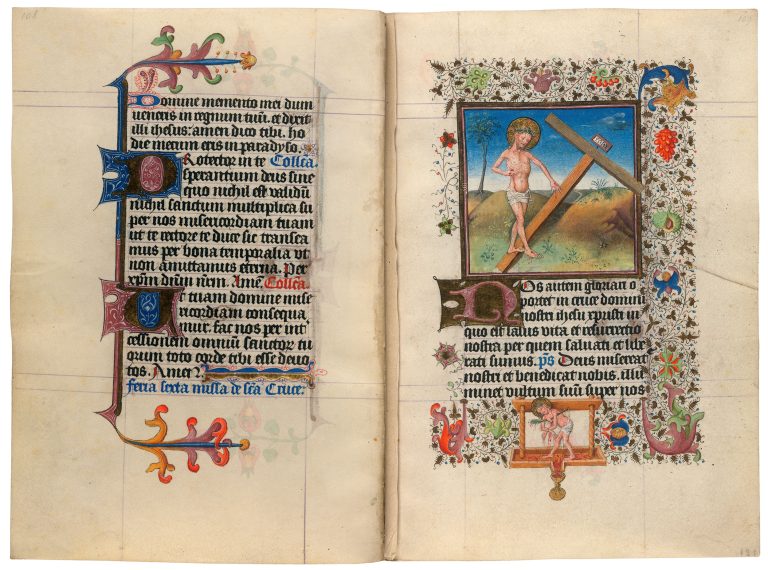 108
Domine memento mei dum
veneris in regnum tuū. et dixit
illi ihesus: amen dico tibi. ho
die mecum eris in paradyso.
Protector in te Collēa.
sperantium deus sine
quo nichil est validū
nichil sanctum multiplica su
per nos misericordiam tuam
ut te rectore te duce sic transea
mus per bona temporalia vt
non amittamus eterna. Per
xp̄m dn̄m nr̄m. Amē. Collēa
tuam domine mise
ricordiam consequa
mur. fac nos per int
cessionem omniū sanctor tu
orum toto corde tibi esse devo
tos. Amen.
feria sexta missa de sc̄a Cruce.
Nos autem gloriari o
portet in cruce domini
nostri ihesu xpristi in
quo est salus vita et resurrectio
nostra per quem salvati et libe
rati sumus. ps Deus misereat
nostri et benedicat nobis. illu
minet vultum suū super nos